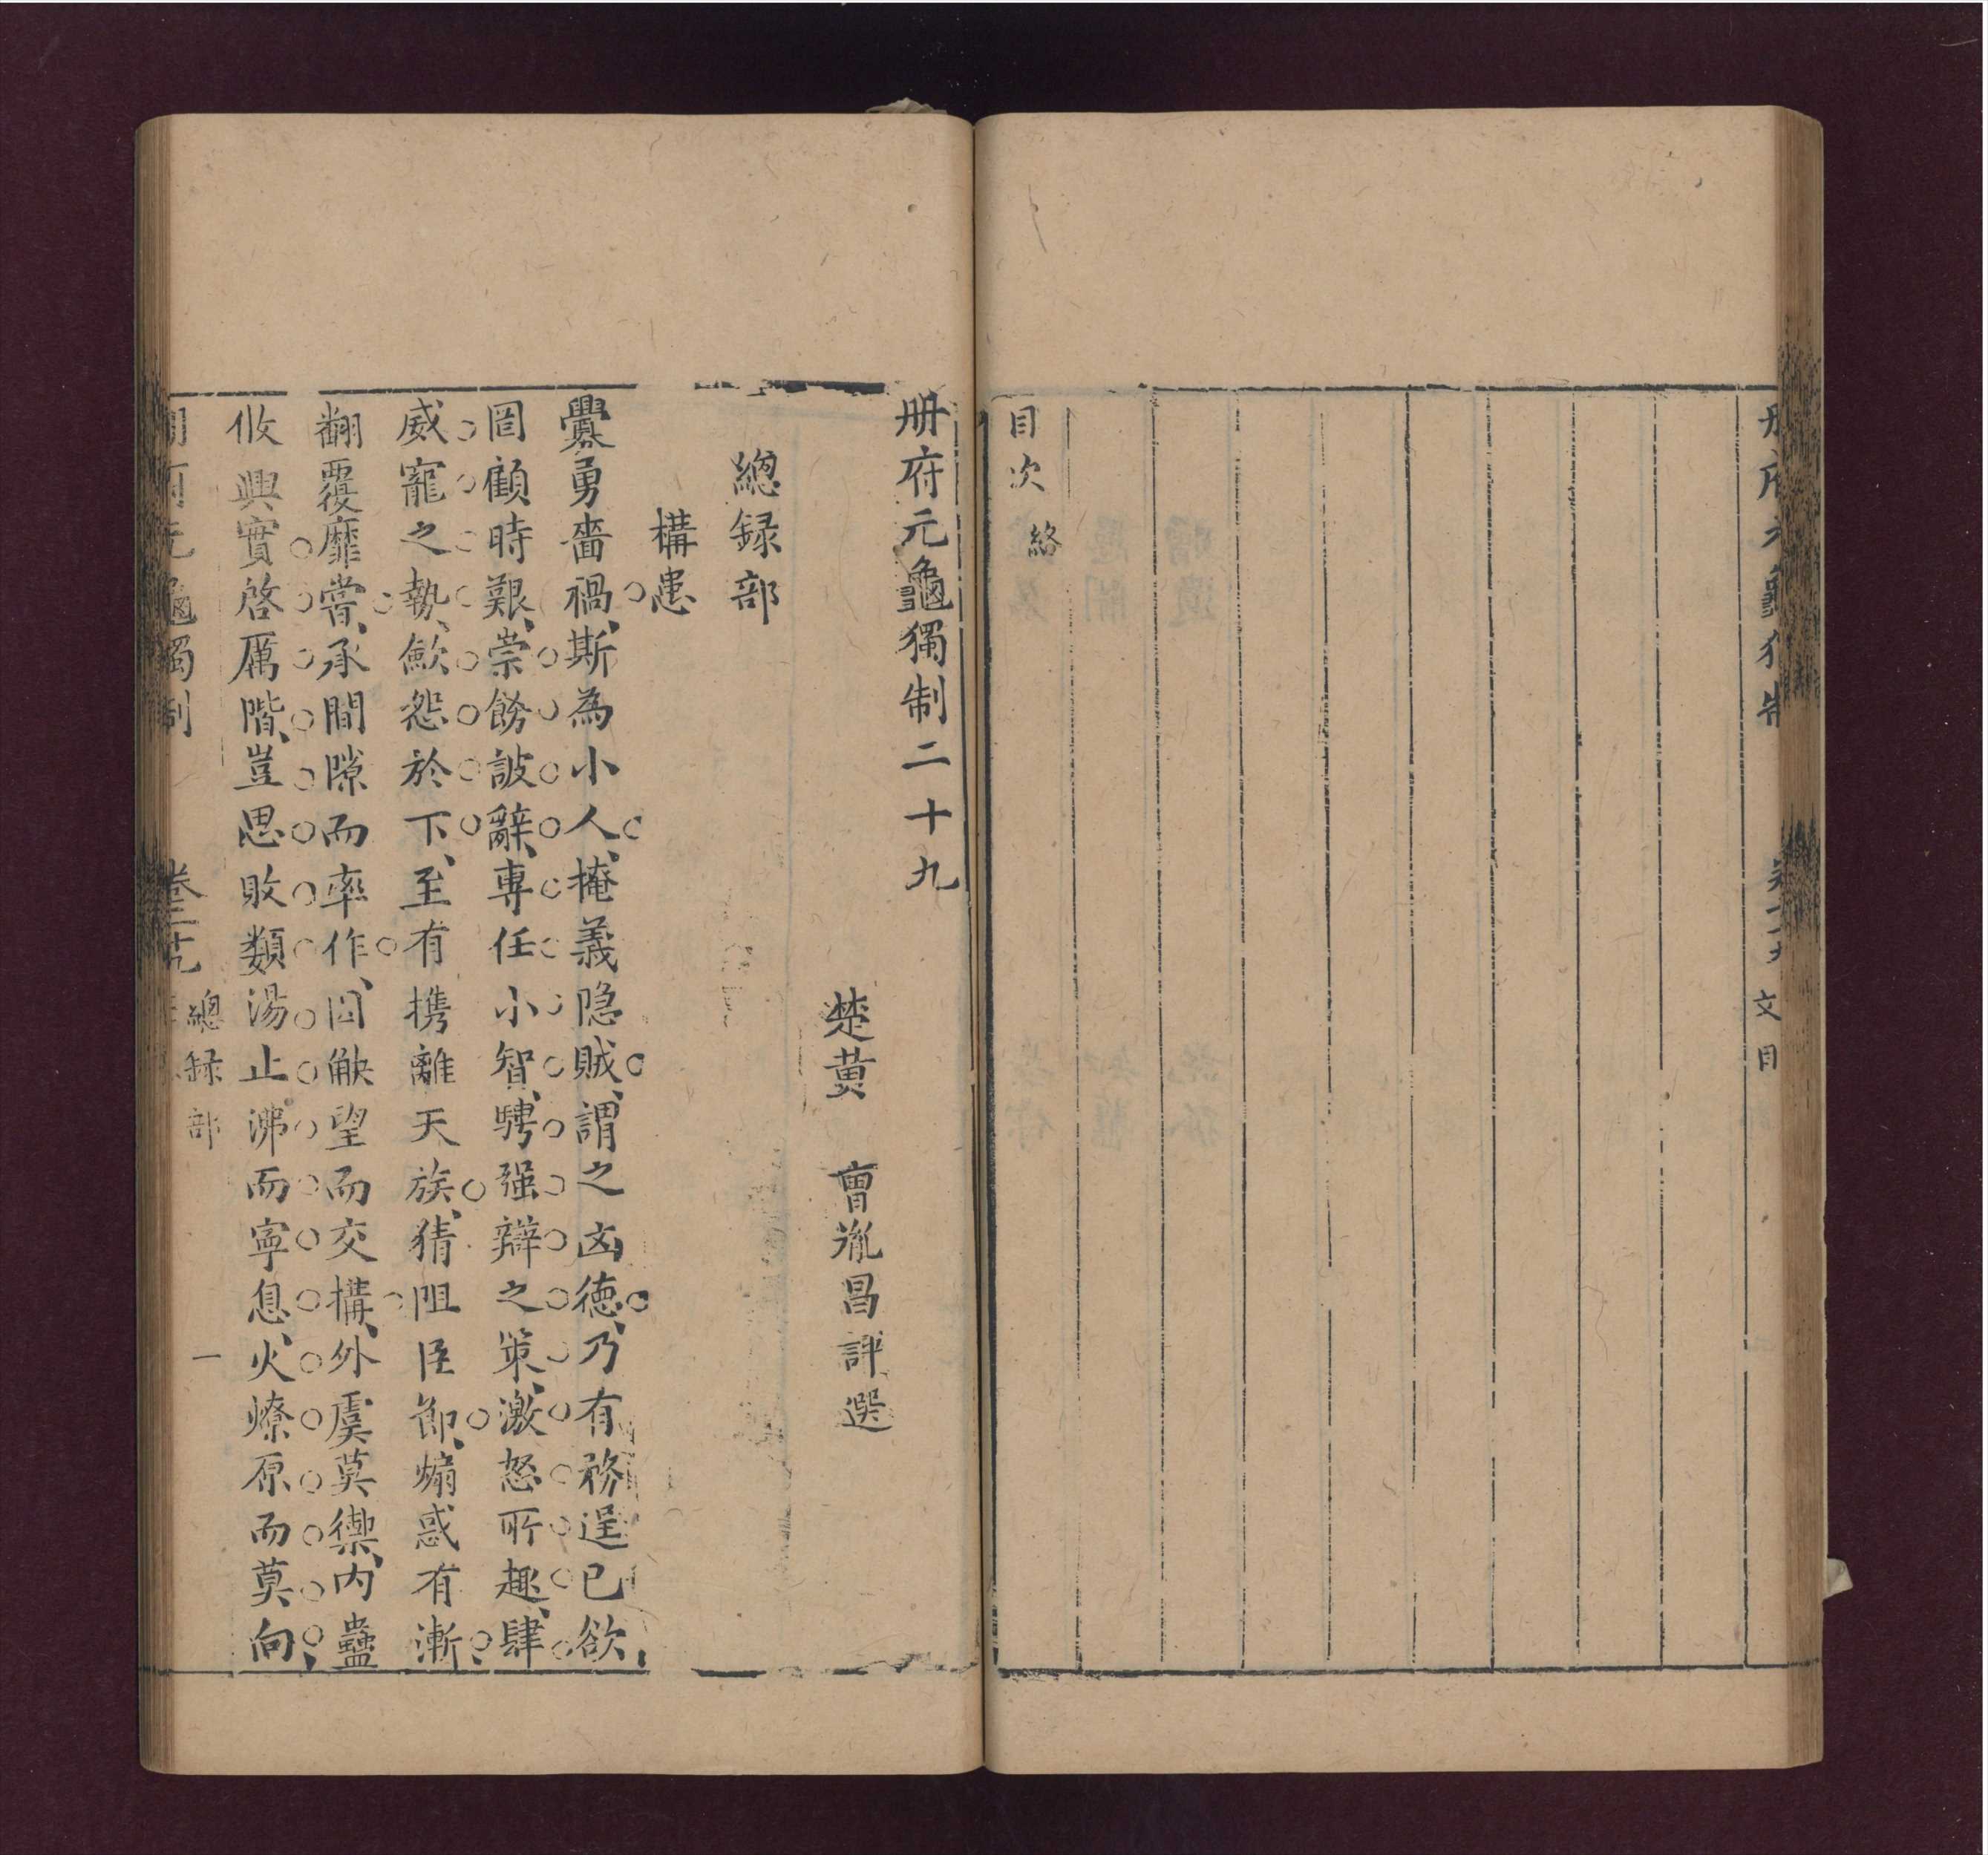 册府元龜獨制
文目
目次終
册府元龜獨制二十九
楚黄　曹胤昌評選
總録部
構患
釁勇嗇禍、斯為小人、掩義隐賊、謂之凶德、乃有務逞已欲、
罔顧時艱、崇餙詖辭、專任小智、騁强辯之策、激怒所趣、肆
威寵之執、歛怨於下、至有携離天族、猜阻臣節、煽惑有漸、
翻覆靡嘗、承間隙而率作、因觖望而交構、外虞莫禦、内蠱
攸興實啓厲階、豈思敗類湯止沸而寧息、火燎原而莫向、
獨制
總録部
一